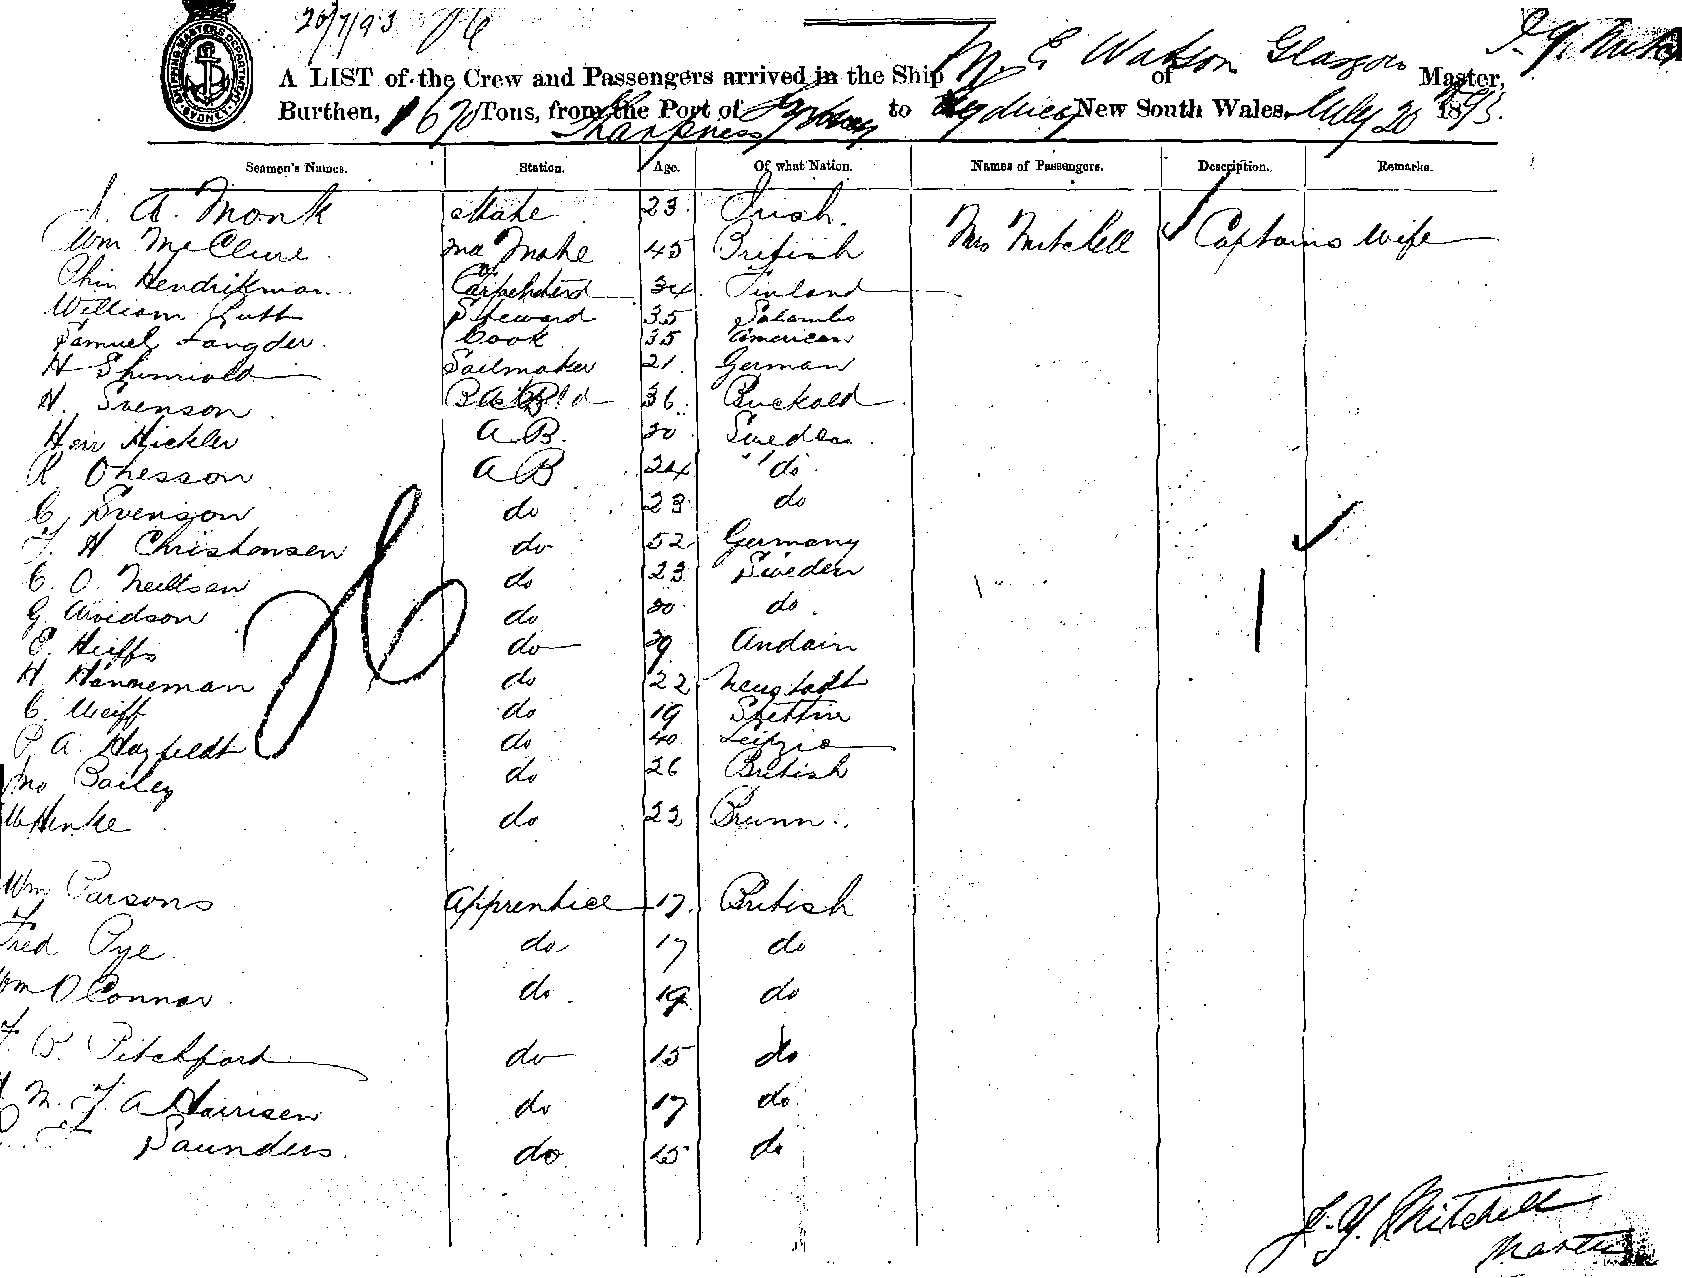 20/7/93
A LIST of the Crew and Passengers arrived in the Ship M. E Watson of Glasgow Master,
Burthen, 1670 Tons, from the Port of Sharpness to Sydney New South Wales, July 20th 1893.
Seamen's Names. Station. Age. Of what Nation. Names of Passengers. Description. Remarks.
J. A. Monk Mate 23 Irish.
Wm McClure 2nd Mate 45 British Mrs Mitchell Captains Wife
Hendrikman Carpenter 34 Finland
William Steward 35
Samuel Langder. Cook 35 American
H Sailmaker 21. German
H. Svenson 36
Hickler A B. 20 Sweden
R Ohesson A B 24 " do
C, Svenson do 23 do
H Christensen do 52 Germany
C. O. Neiltsen do 23 Sweden
G Arvidson do 20 do
E. Heiffs do 29
H Hanneman do 22 Neustadt
C. do 19 Stettin
P. A. Hayfeldt do 40 Leipzig
Jno Bailey do 26 British
W Henke do 22 Brunn
Wm Parsons Apprentice 17 British
Fred Pye do 17 do
Wm O Connor do 19 do
F. B. Pitchford do 15 do
M. F. A Harrisen do 17 do
Saunders do 15 do
J. Y. Mitchell
Master